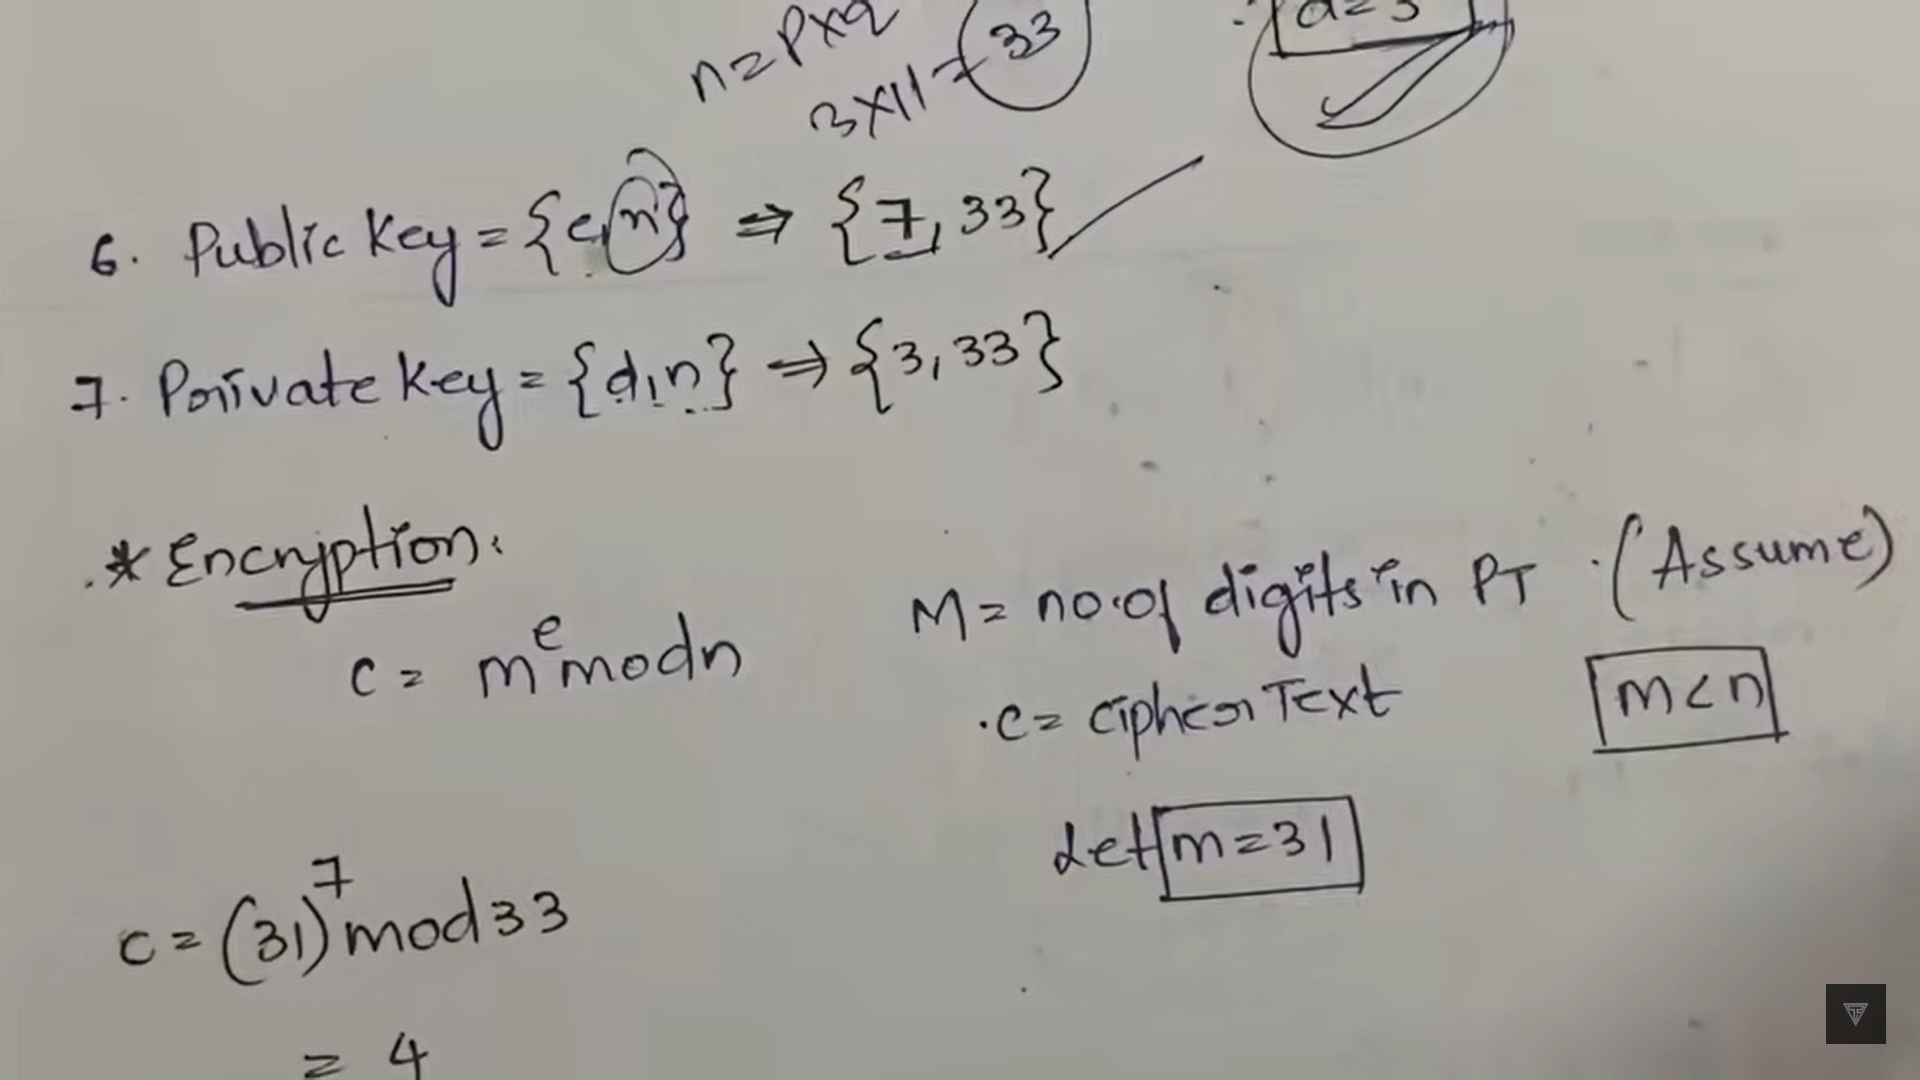 n=P×q
3×11=33
d=3
6. Public key={e,n} ⇒ {7,33}
7. Private key={d,n} ⇒ {3,33}
* Encryption:
c = m^e mod n
M = no.of digits in PT (Assume)
c = cipher Text
m<n
Let m=31
c = (31)^7 mod 33
= 4